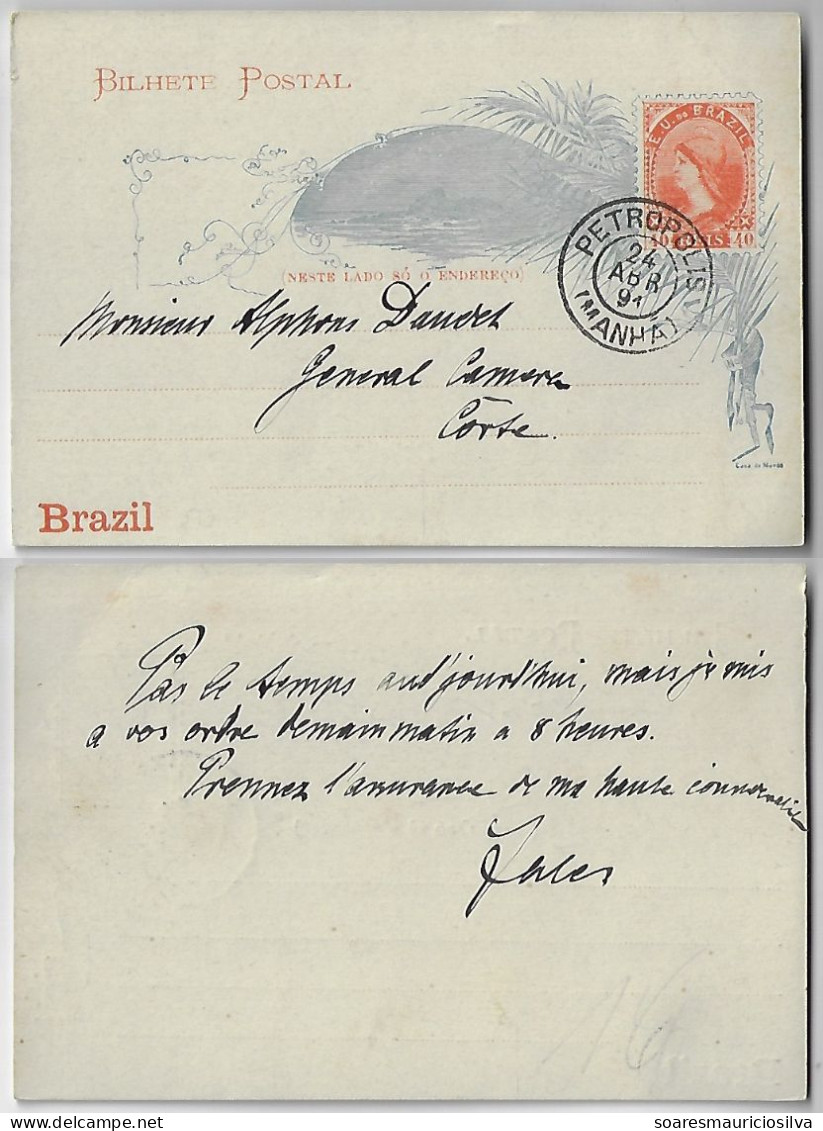 BILHETE POSTAL
E. U. DO BRAZIL
40 REIS 40
PETROPOLIS
24
ABR
91
(MANHÃ)
(NESTE LADO SÓ O ENDEREÇO)
Monsieur Alphons Daudet
General Camera
Côrte.
Casa da Moeda
Brazil
Pas le temps aud'jourd'hui, mais je suis
a vos ordre demain matin a 8 heures.
Prennez l'assurance de ma haute
Jules
soaresmauriciosilva